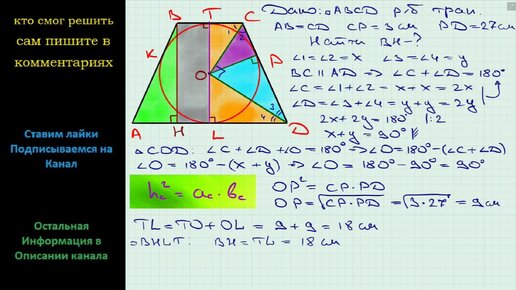 кто смог решить
сам пишите в
комментариях
Ставим лайки
Подписываемся на
Канал
Остальная
Информация в
Описании канала
B T C
K P O
A H L D
1 2 3 4
Дано: ABCD р/б трап.
AB=CD CP=3см PD=27см
Найти BH-?
∠1=∠2=x ∠3=∠4=y
BC∥AD ⇒ ∠C+∠D=180°
∠C=∠1+∠2=x+x=2x
∠D=∠3+∠4=y+y=2y
2x+2y=180° |:2
x+y=90°
△COD: ∠C+∠D+∠O=180° ⇒ ∠O=180°-(∠C+∠D)
∠O=180°-(x+y) ⇒ ∠O=180°-90°=90°
h_c²=a_c·b_c
OP²=CP·PD
OP=√CP·PD=√3·27=9см
TL=TO+OL=9+9=18см
▫BHLT: BH=TL=18см